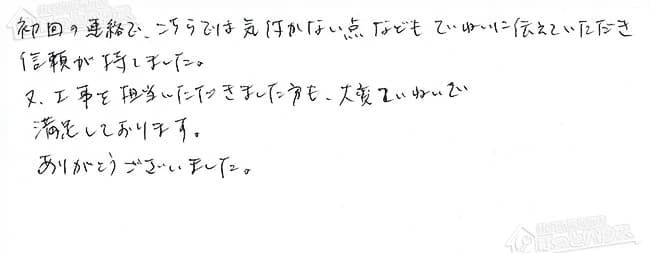 初回の連絡で、こちらでは気付かない点などもていねいに伝えていただき
信頼が持てました。
又、工事を担当いただきました方も、大変ていねいで
満足しております。
ありがとうございました。